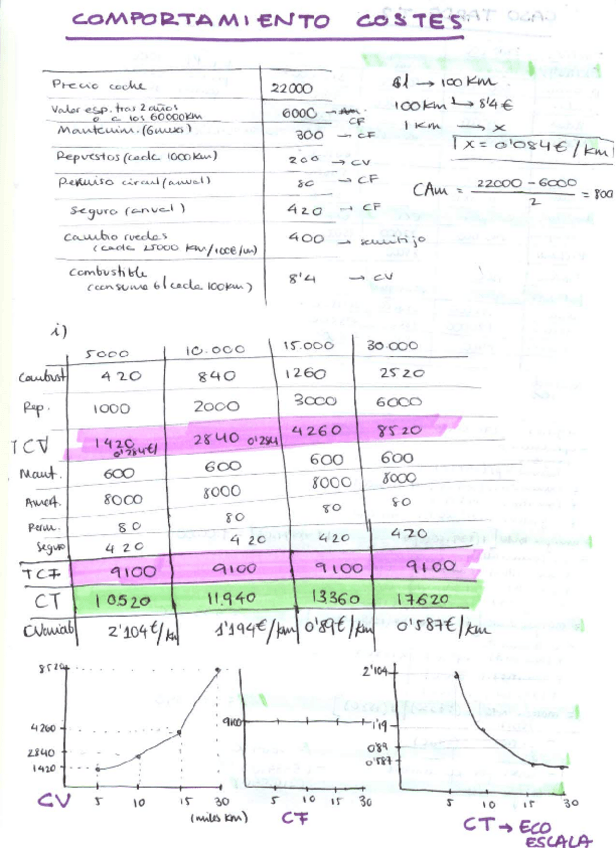 COMPORTAMIENTO COSTES
Precio coche 22000
Valor esp. tras 2 años
o a los 60000 Km 6000 → CF
Mantenim. (6 meses) 300 → CF
Repuestos (cada 1000 Km) 200 → CV
Permiso circul (anual) 80 → CF
Seguro (anual) 420 → CF
Cambio ruedas
(cada 25000 Km/100€/un) 400 → semifijo
Combustible
(consumo 6l cada 100 km) 8'4 → CV
6l → 100 Km
100 Km → 8'4 €
1 Km → x
x = 0'084 €/Km
CAm = 22000 - 6000 / 2 = 800
i)
5000 10.000 15.000 30.000
Combust 420 840 1260 2520
Rep. 1000 2000 3000 6000
TCV 1420 2840 4260 8520
0'284€/ 0'284
Mant. 600 600 600 600
Amort. 8000 8000 8000 8000
Perm. 80 80 80 80
Seguro 420 420 420 420
TCF 9100 9100 9100 9100
CT 10520 11.940 13360 17620
CVariab 2'104€/km 1'194€/km 0'89€/km 0'587€/km
8520
4260
2840
1420
5 10 15 30
(miles km)
CV
9100
5 10 15 30
CF
2'104
1'19
0'89
0'587
5 10 15 30
CT → ECO
ESCALA